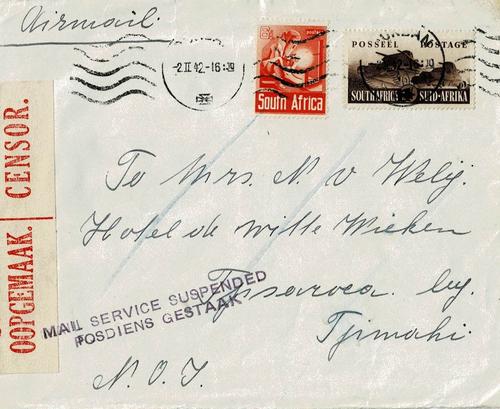 Airmail.
-2.II 42-16:19
South Africa
DURBAN
POSSEEL POSTAGE
42-16:19
SOUTH AFRICA SUID-AFRIKA
OOPGEMAAK. CENSOR.
To Mrs. N. v Welij.
Hotel de witte Wieken
Tjisaroea by.
Tjimahi.
N.O.I.
MAIL SERVICE SUSPENDED
POSDIENS GESTAAK